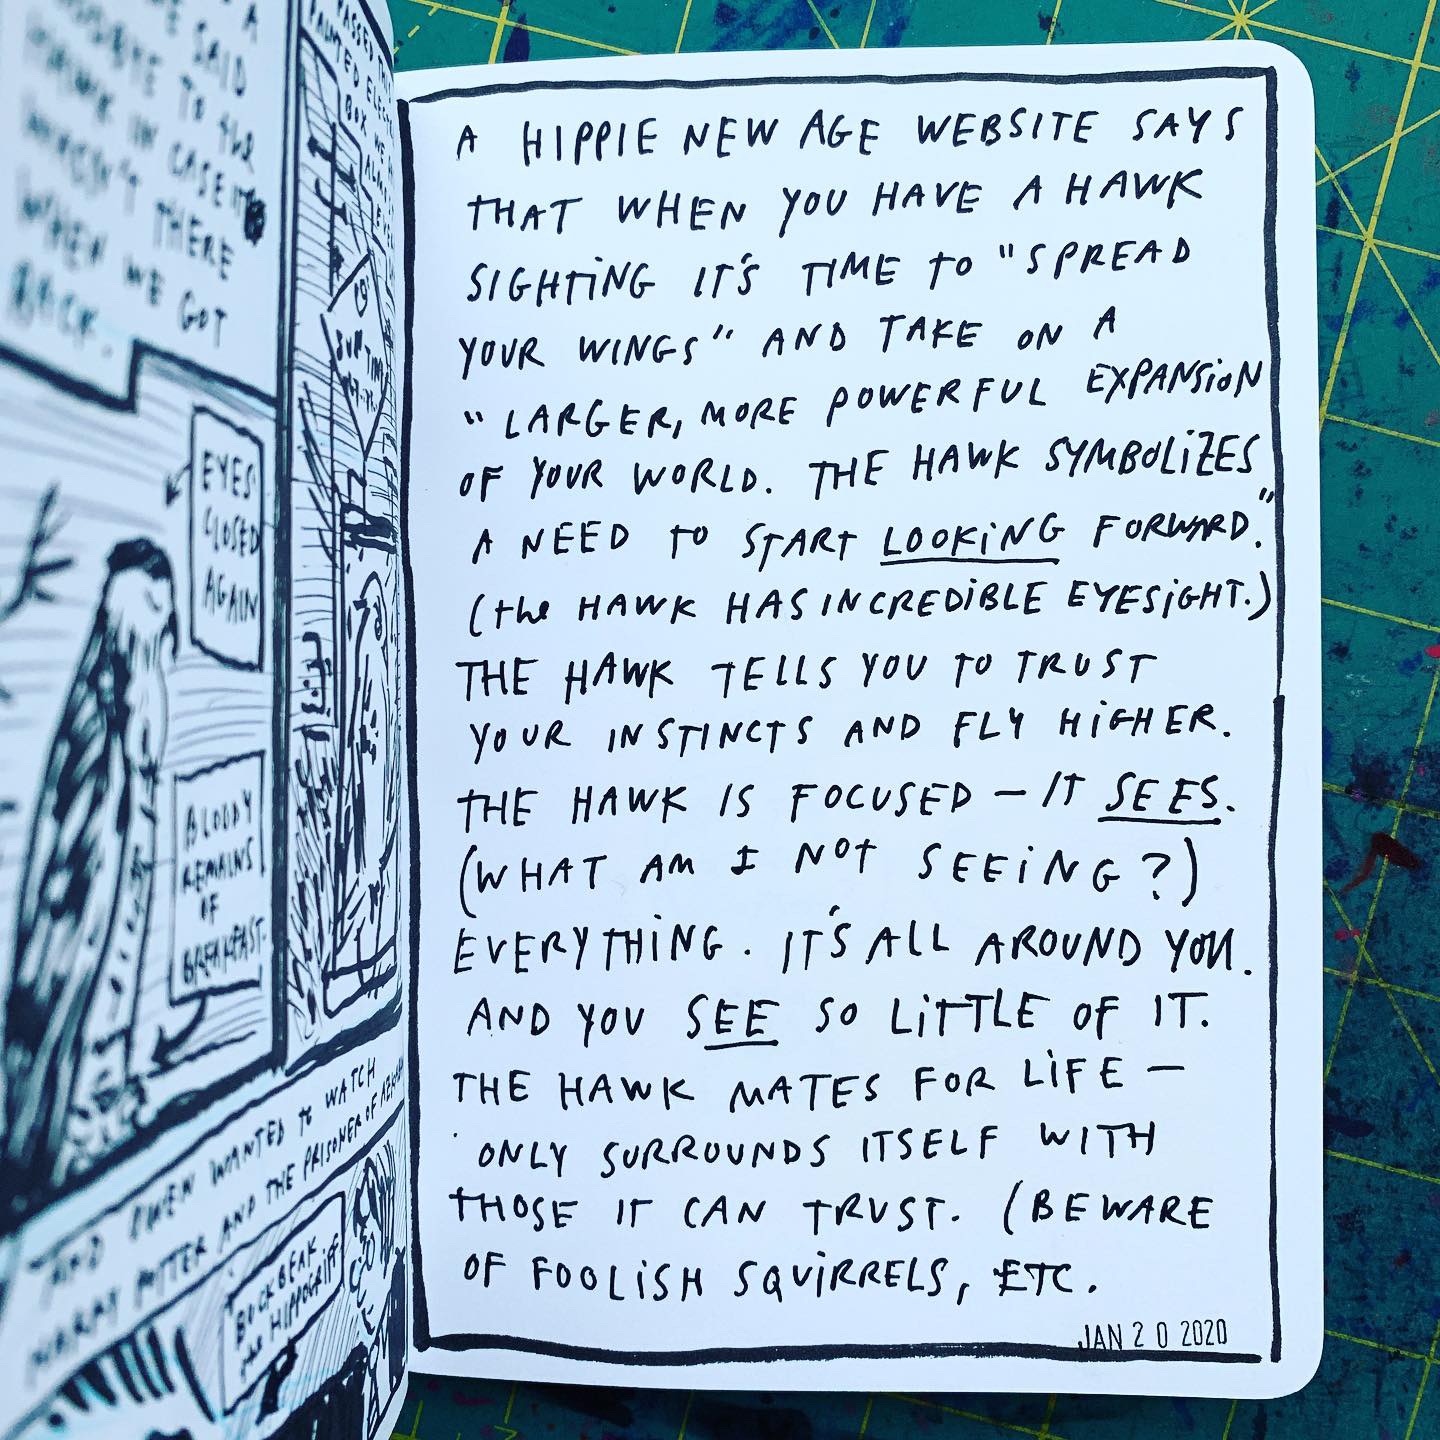 A
SAID
GOODBYE TO the
HAWK IN CASE IT
WASN'T THERE
WHEN WE GOT
BACK.
EYES
CLOSED
AGAIN
BLOODY
REMAINS
OF
BREAKFAST.
PASSED
PAINTED
BOX WE
AND OWEN WANTED to WATCH
HARRY POTTER AND THE PRISONER OF
BUCKBEAK
the HIPPOGRIFF
A HIPPIE NEW AGE WEBSITE SAYS
THAT WHEN YOU HAVE A HAWK
SIGHTING IT'S TIME TO "SPREAD
YOUR WINGS" AND TAKE ON A
"LARGER, MORE POWERFUL EXPANSION
OF YOUR WORLD. THE HAWK SYMBOLIZES
A NEED TO START LOOKING FORWARD."
(the HAWK HAS INCREDIBLE EYESIGHT.)
THE HAWK TELLS YOU TO TRUST
YOUR INSTINCTS AND FLY HIGHER.
THE HAWK IS FOCUSED — IT SEES.
(WHAT AM I NOT SEEING?)
EVERYTHING. IT'S ALL AROUND YOU.
AND YOU SEE SO LITTLE OF IT.
THE HAWK MATES FOR LIFE —
ONLY SURROUNDS ITSELF WITH
THOSE IT CAN TRUST. (BEWARE
OF FOOLISH SQUIRRELS, ETC.
JAN 20 2020